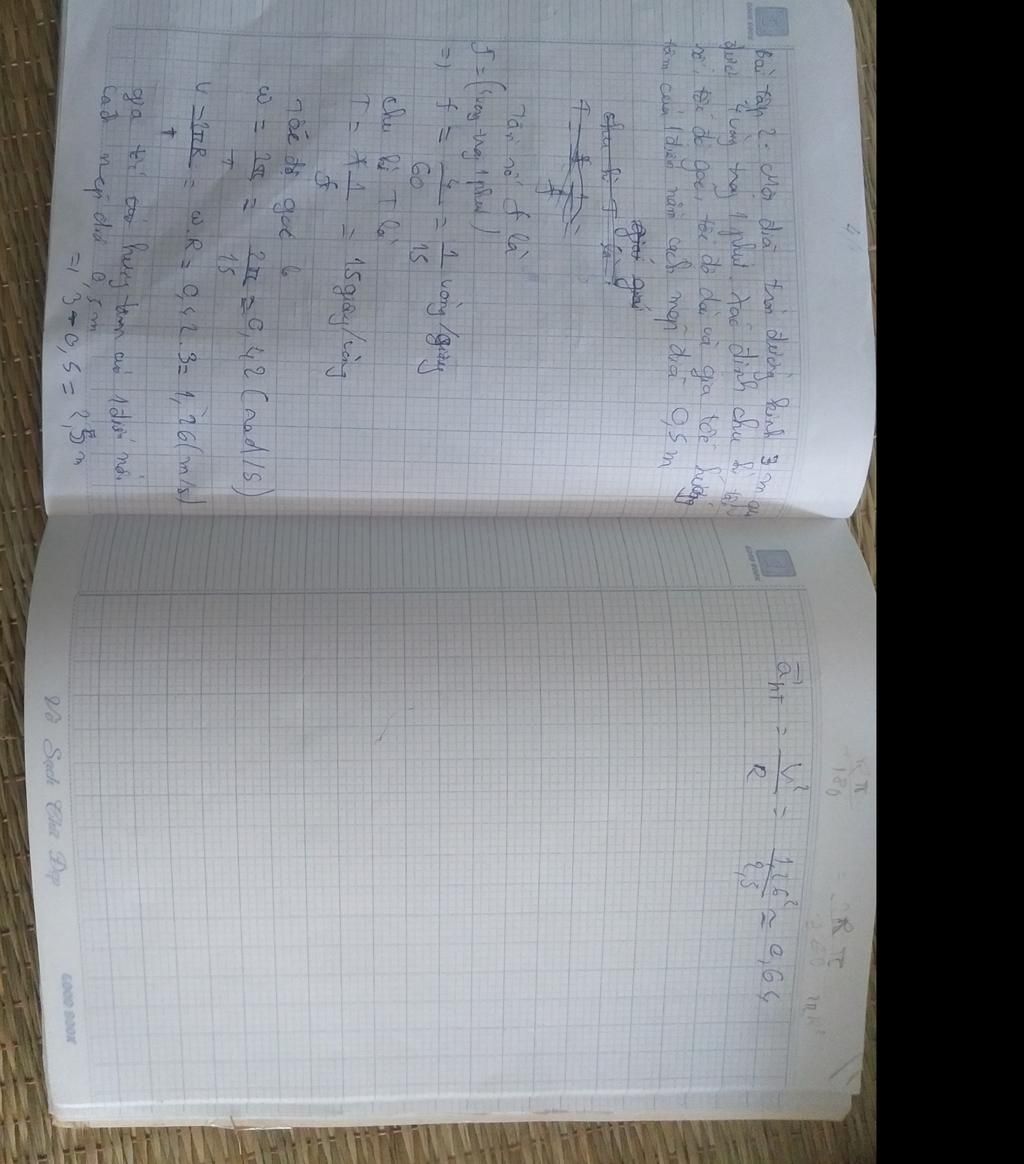 Bài tập 2: Một đĩa tròn đường kính 3 m quay
được 4 vòng trong 1 phút. Xác định chu kì tần
số, tốc độ góc, tốc độ dài và gia tốc hướng
tâm của 1 điểm nằm cách mép đĩa 0,5 m
giải
chu kì T là
T =
Tần số f là
f = (vòng trong 1 phút)
=> f = 4/60 = 1/15 vòng/giây
chu kì T là
T = 1/f = 15 giây/vòng
Tốc độ góc là
ω = 2π/T = 2π/15 = 0,42 (rad/s)
v = 2πR/T = ω.R = 0,42.3 = 1,26 (m/s)
gia tốc hướng tâm của 1 điểm nằm
cách mép đĩa 0,5m
=> 3 - 0,5 = 2,5 m
a⃗ht = v²/R = 1,26²/2,5 ≈ 0,64
π/180
Vở Sạch Chữ Đẹp
GOOD BOOK
GOOD BOOK
GOOD BOOK